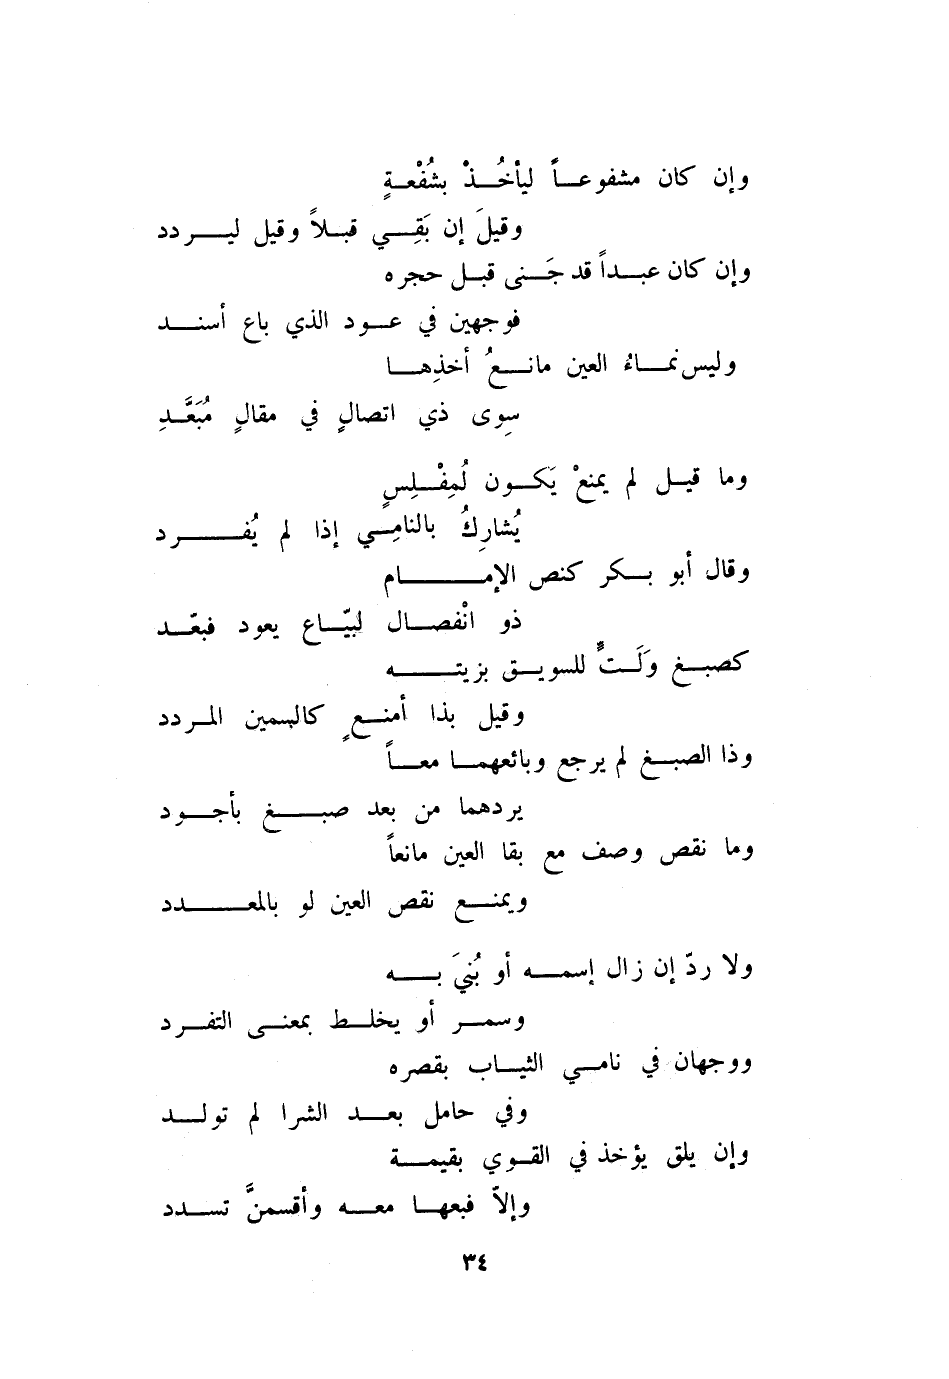 وإن كان مشفوعاً ليأخُذْ بشُفْعةٍ
وقيلَ إن بَقِي قبلاً وقيل ليردد
وإن كان عبداً قد جَنى قبل حجره
فوجهين في عود الذي باع أسند
وليس نماءُ العين مانعُ أخذِها
سِوى ذي اتصالٍ في مقالٍ مُبَعَّدِ
وما قيل لم يمنعْ يَكون لُمِفْلِسٍ
يُشاركُ بالنامِي إذا لم يُفرد
وقال أبو بكر كنص الإمام
ذو انْفصال لبيّاع يعود فبعّد
كصبغ وَلَتٌّ للسويق بزيته
وقيل بذا أمنعٍ كالسمين المردد
وذا الصبغ لم يرجع وبائعهما معاً
يردهما من بعد صبغ بأجود
وما نقص وصف مع بقا العين مانعاً
ويمنع نقص العين لو بالمعدد
ولا ردّ إن زال إسمه أو بُنيَ به
وسمر أو يخلط بمعنى التفرد
ووجهان في نامي الثياب بقصره
وفي حامل بعد الشرا لم تولد
وإن يلق يؤخذ في القوي بقيمة
وإلاّ فبعها معه وأقسمنَّ تسدد
٣٤